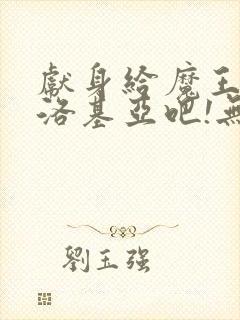 獻身給魔王
洛基亞吧!無
劉玉強